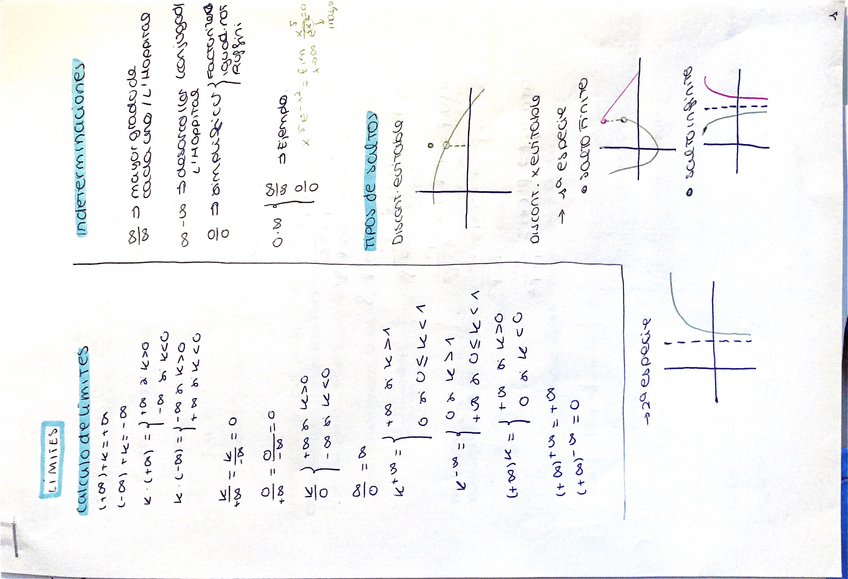 LÍMITES
Calculo de Límites
(+∞)+k=+∞
(-∞)+k=-∞
k·(+∞) = { +∞ si k>0
-∞ si k<0
k·(-∞) = { -∞ si k>0
+∞ si k<0
k/+∞ = k/-∞ = 0
0/+∞ = 0/-∞ = 0
k/0 { +∞ si k>0
-∞ si k<0
∞/0 = ∞
k^+∞ = { +∞ si k>1
0 si 0≤k<1
k^-∞ = { 0 si k>1
+∞ si 0≤k<1
(+∞)^k = { +∞ si k>0
0 si k<0
(+∞)^+∞ = +∞
(+∞)^-∞ = 0
Indeterminaciones
∞/∞ ⇒ mayor grado de
cada uno / L'Hoppital
∞-∞ ⇒ desarrollar conjugado
L'Hoppital
0/0 ⇒ simplificar { Factorizar
Ruffini
0·∞ { ∞/∞ 0/0 ⇒ Ejemplo
TIPOS de saltos
Discont. evitable
Discont. x evitable
→ 1ª especie
• salto finito
• salto infinito
→ 2ª especie